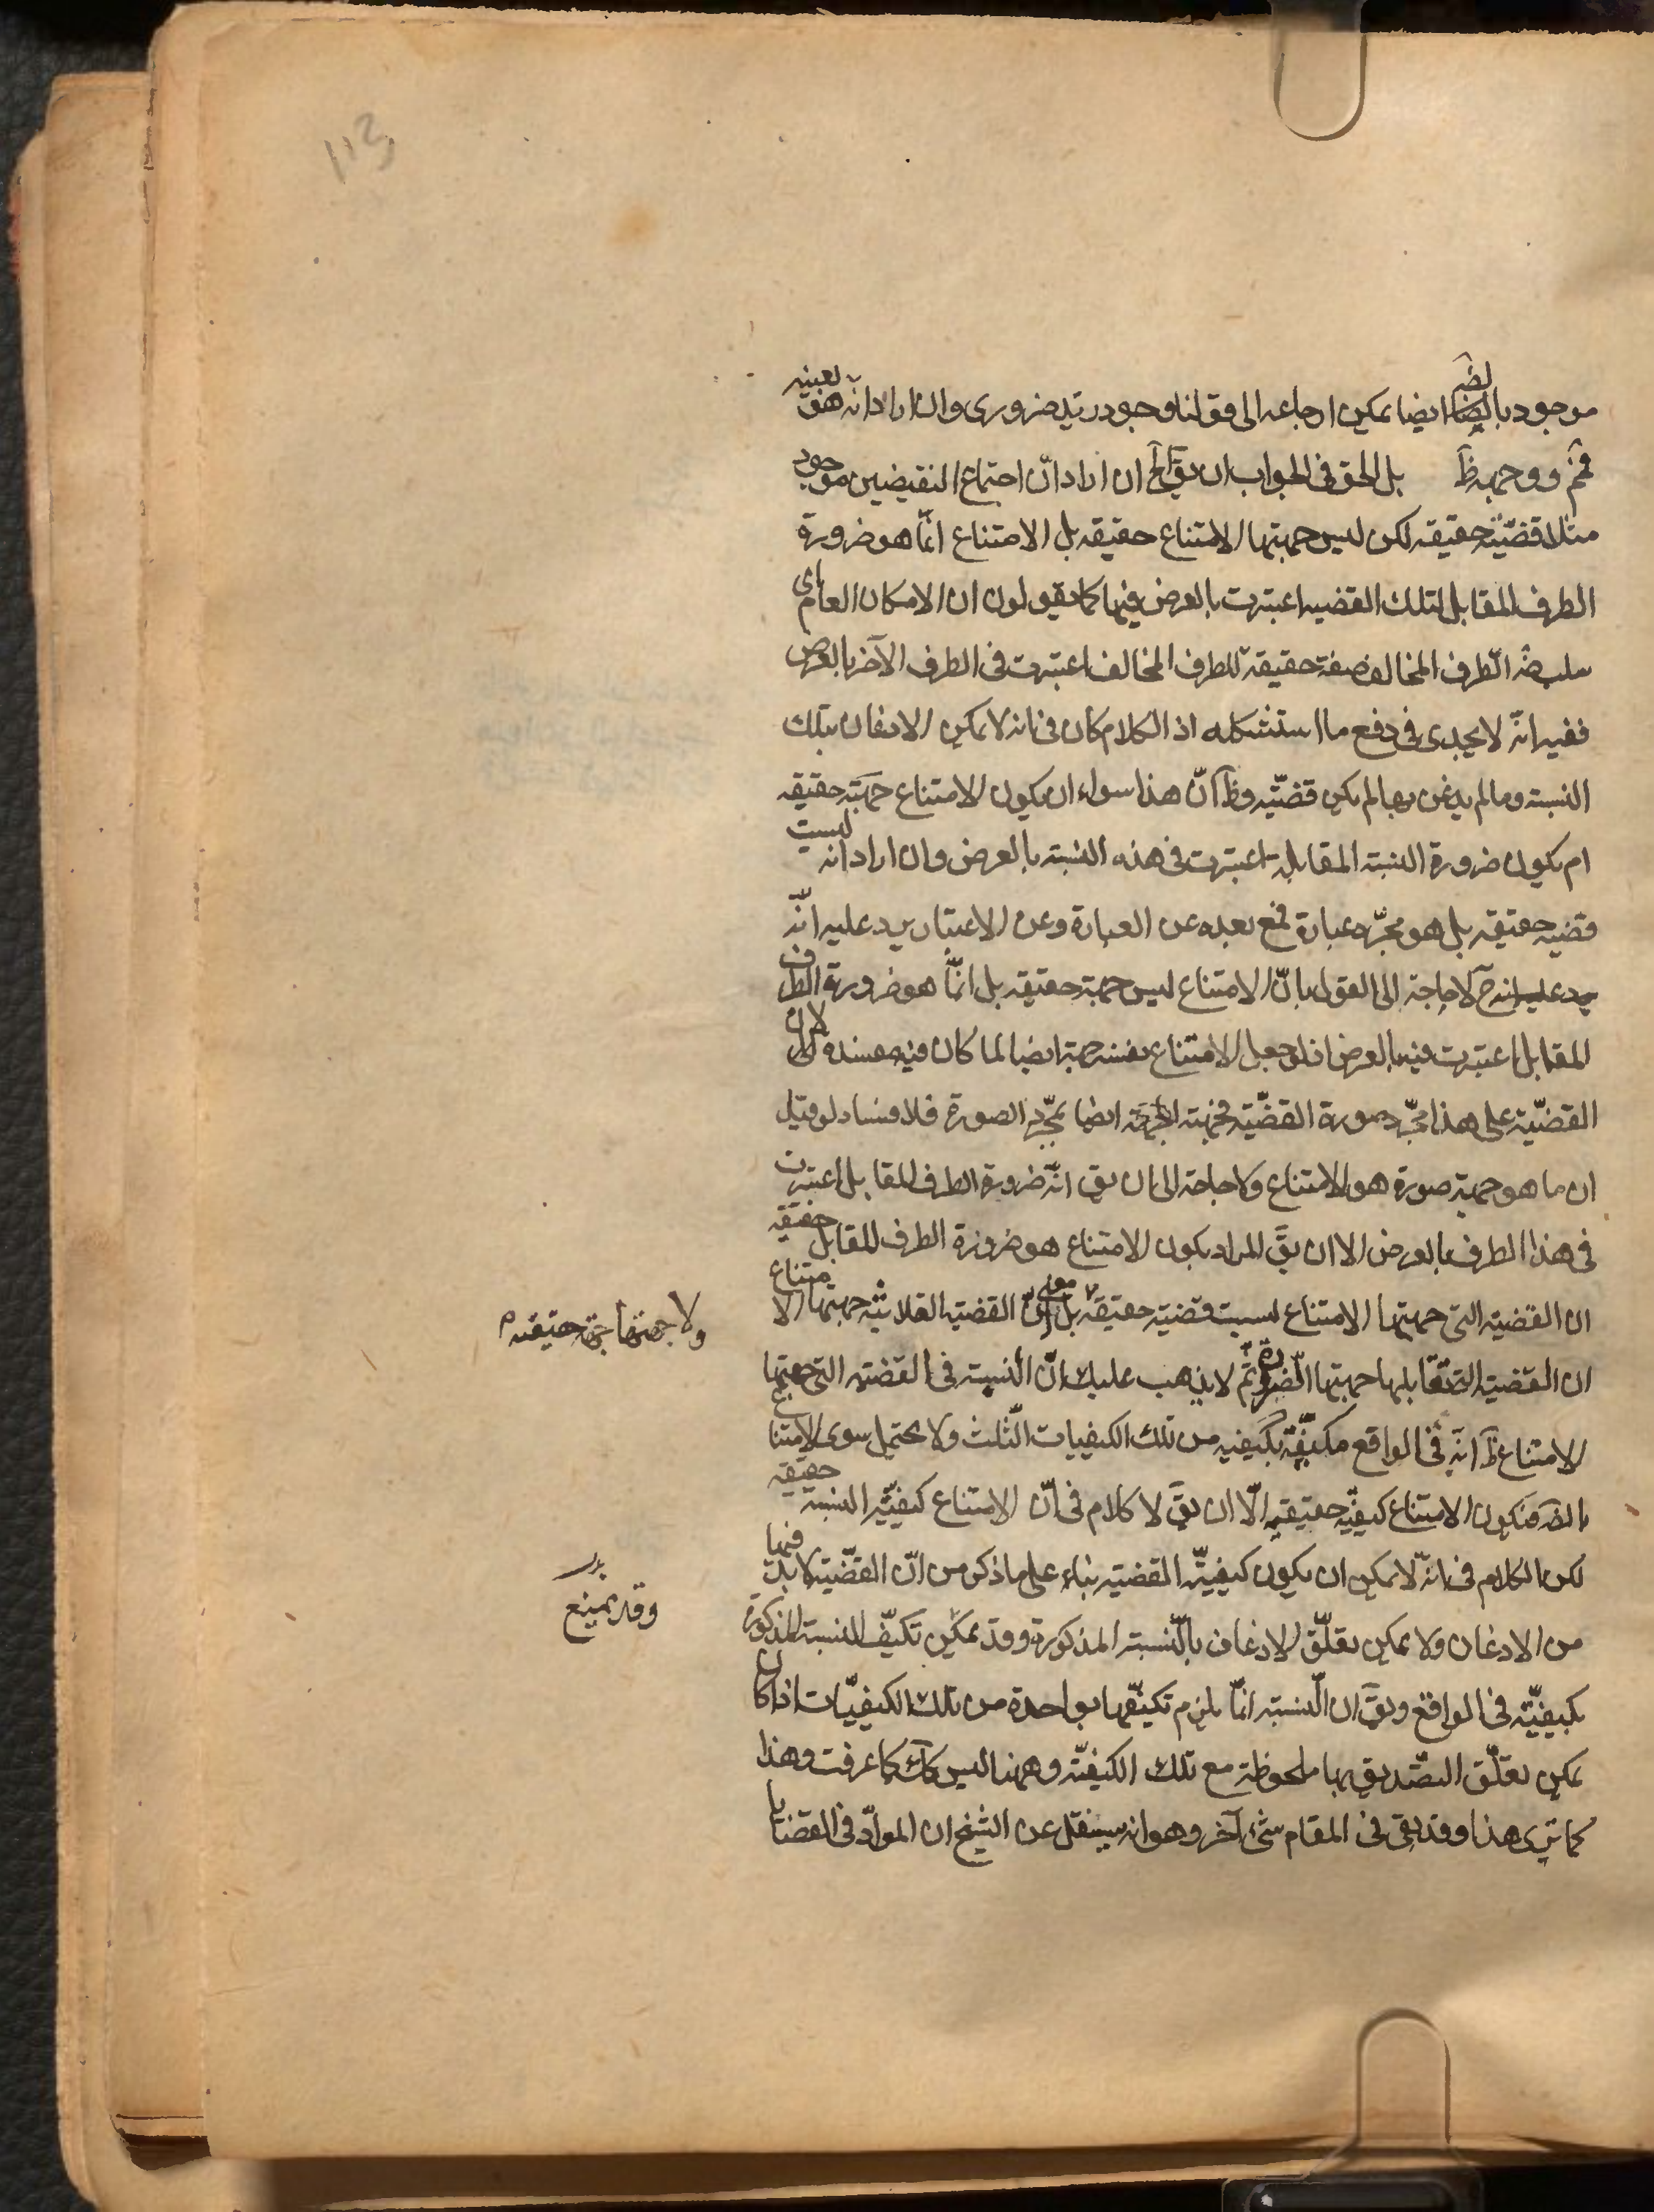 113
موجود بالضرورة ايضا يمكن ارجاعه الى قولنا وجود زيد ضرورى وان اراد انه هو بعينه
فمم ووجهه ظ بل الحق فى الجواب ان يق ان اراد انّ اجتماع النقيضين موجود
مثلا قضيّة حقيقة لكن ليس جهتها الامتناع حقيقه بل الامتناع انّما هو ضرورة
الطرف المقابل لتلك القضيه اعتبرت بالعرض فيها كما يقولون ان الامكان العام اى
سلب ضرورة الطرف المخالف صفة حقيقة للطرف المخالف اعتبرت فى الطرف الآخر بالعرض
ففيه انّه لا يجدى فى دفع ما استشكله اذ الكلام كان فى انه لا يمكن الاذعان بتلك
النسبة وما لم يذعن بها لم يكن قضيّه وظ انّ هذا سواء ان يكون الامتناع جهة حقيقه
ام يكون ضرورة النسبة المقابلة اعتبرت فى هذه النسبة بالعرض وان اراد انه ليست
قضيه حقيقه بل هو مجرّد عبارة فمع بعده عن العبارة وعن الاعتبار يرد عليه انّه
ح لا حاجة الى القول بانّ الامتناع ليس جهة حقيقه بل انّما هو ضرورة الطرف
المقابل اعتبرت فيه بالعرض اذ لو جعل الامتناع بنفسه جهة ايضا لما كان فيه مفسده لان
القضيّة على هذا مجرّد صورة القضيّة فجهته ايضا بمجرّد الصورة فلا فساد لو قيل
ان ما هو جهة صورة هو الامتناع ولا حاجة الى ان يق انّه ضرورة الطرف المقابل اعتبرت
فى هذا الطرف بالعرض الا ان يق المراد بكون الامتناع هو ضرورة الطرف المقابل حقيقه
ان القضيّة التى جهتها الامتناع ليست قضية حقيقه بل معنى انّ القضيّة الفلانيّه جهتها الامتناع
ولا جهتها جهة حقيقه
ان القضيّة التى تقابلها جهتها الضرورة ثم لا يذهب عليك انّ النسبة فى القضيّه التى جهتها
الامتناع ظ انّه فى الواقع مكيّفة بكيفيه من تلك الكيفيات الثلث ولا يحتمل سوى الامتناع
بالضرورة فيكون الامتناع كيفيّه حقيقيه الّا ان يق لا كلام فى انّ الامتناع كيفيّة النسبة حقيقه
لكن الكلام فى انّه لا يمكن ان يكون كيفيّة القضيّه بناء على ما ذكر من انّ القضيّة لا بد فيها
من الاذعان ولا يمكن تعلّق الاذعان بالنسبة المذكورة وقد يمكن تكيّف النسبة المذكورة
وقد يمنع
بكيفيّة فى الواقع ويق ان النسبة انّما يلزم تكيّفها بواحدة من تلك الكيفيّات اذا كان
يمكن تعلّق التصديق بها ملحوظة مع تلك الكيفيّة وههنا ليس كك كما عرفت وهذا
كما ترى هذا وقد بقى فى المقام شئ آخر وهو انه سينقل عن الشيخ ان الموادّ فى القضايا